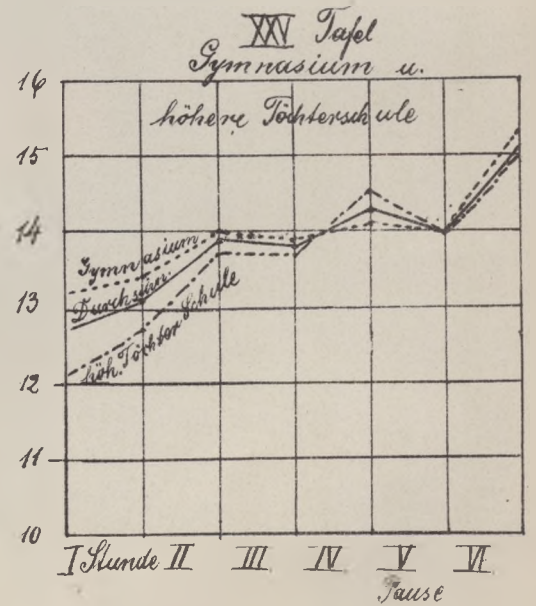 XXV Tafel
Gymnasium u.
höhere Töchterschule
16
15
14
13
12
11
10
Gymnasium
Durchschn.
höh. Töchter Schule
I Stunde II III IV V VI
Pause